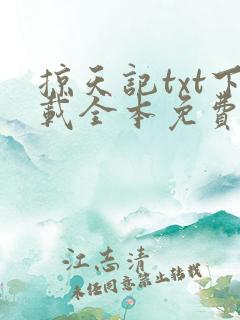 掠天記txt下
載全本免費
江志清
未經同意禁止轉載